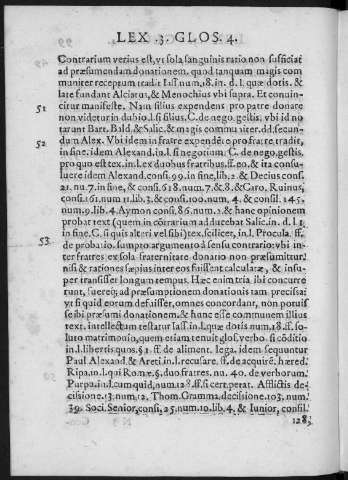 LEX .3. GLOS. 4.
Contrarium verius est, vt sola sanguinis ratio non sufficiat
ad præsumendam donationem, quod tanquam magis com
muniter receptum tradit Iaſ. num. 18. in. d. l. quæ dotis. &
late fundant Alciatus, & Menochius vbi supra. Et conuin-
51 citur manifeste. Nam filius expendens pro patre donare
non videtur in dubio. l. si filius. C. de nego. gestis. vbi id no
tarunt Bart. Bald. & Salic. & magis commu niter. dd. secun-
52 dum Alex. Vbi idem in fratre expendẽte pro fratre tradit,
in fine. idem Alexand. in. l. si negotium. C. de nego. gestis.
pro quo est tex. in. l. ex duobus fratribus. ff. eo. & ita consu-
luere idem Alexand. consi. 99. in fine, lib. 2. & Decius consi.
21. nu. 7. in fine, & consi. 618. num. 7. & 8. & Caro. Ruinus,
consi. 161. num 11. lib. 3. & consi. 100. num, 4. & consil. 145.
num. 9. lib. 4. Aymon consi. 86. num. 2. & hanc opinionem
probat text (quem in cõtrarium ad ducebat Salic. in d. l. 1.
in fine. C. si quis alteri vel sibi) tex. scilicet, in. l. Procula. ff.
53. de probatio. sumpto argumento à sensu contrario: vbi in-
ter fratres ex sola fraternitate donatio non præsumitur,
nisi & rationes sæpius inter eos fuissent calculatæ, & insu-
per transisset longum tempus. Hæc enim tria ibi concurre
runt, fuereq; ad præsumptionem donationis tam præcisa;
vt si quid eorum defuisset, omnes concordant, non potuis
se ibi præsumi donationem. & hunc esse communem illius
text. intellectum testatur Iaſ. in. l. quæ dotis num. 18. ff. so-
luto matrimonio, quem etiam tenuit glos. verbo. si cõditio
in. l. libertis quos. §. 1. ff. de aliment. lega. idem sequuntur
Paul Alexand & Areti. in. l. recusare. ff. de acquirẽ. hæred.
Ripa. in. l. qui Romæ §. duo fratres. nu. 40. de verborum.
Purpu. in. l. cum quid, num. 128. ff. si cert. petat. Afflictis de-
cisione. 13. num. 12. Thom. Gramma. decisione. 103. num.
39. Soci. Senior, consi. 25. num. 10. lib. 4, & Iunior, consil.
128.